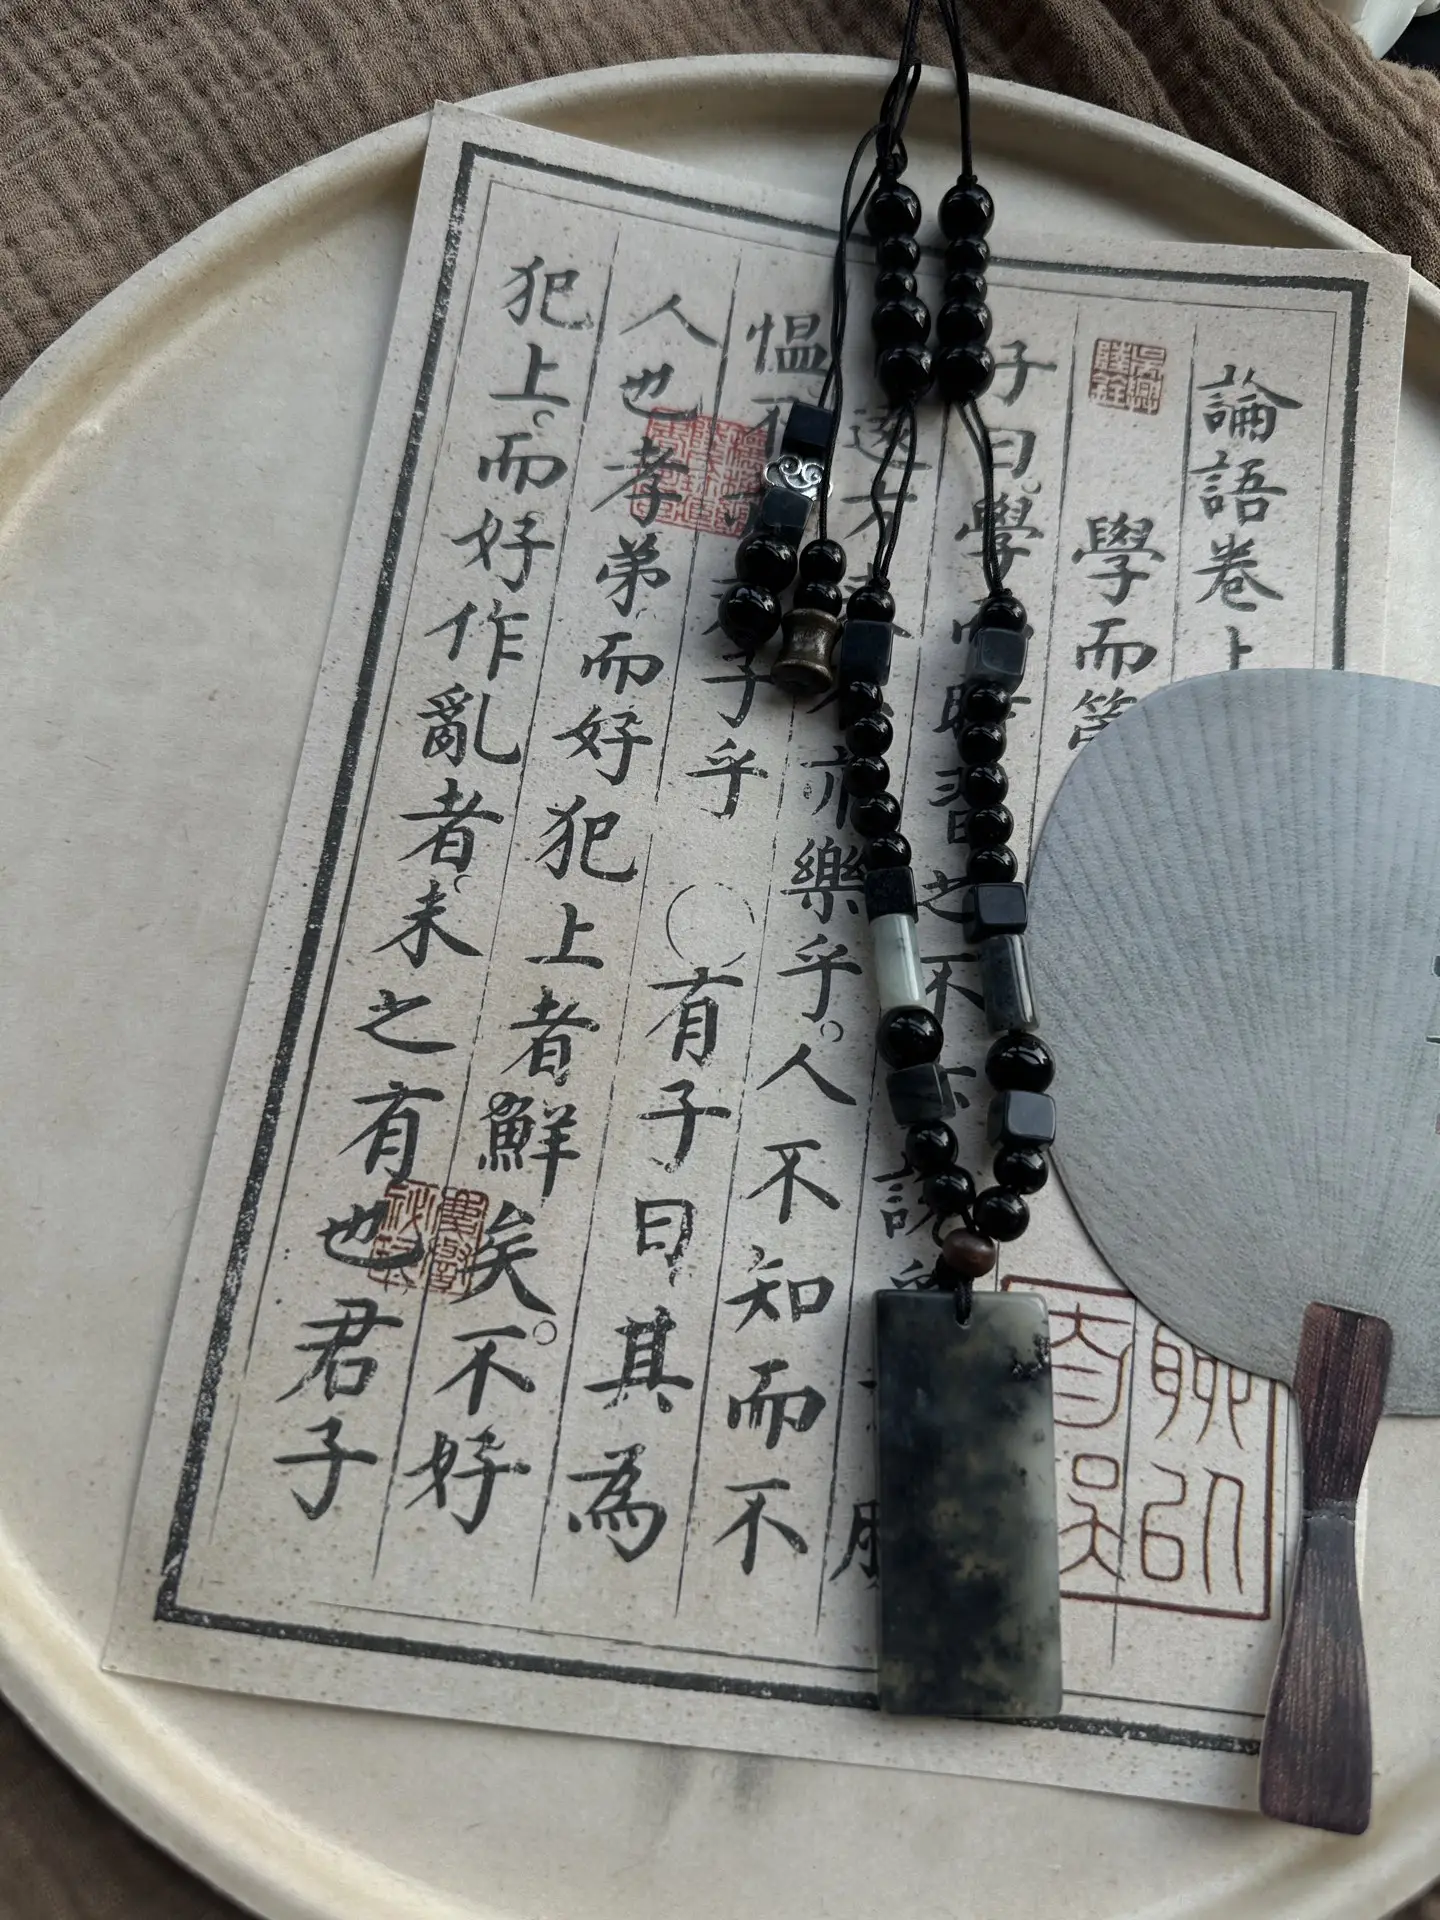 論語卷上
學而
子曰。學而時習之不亦說
遠方來亦樂乎。人不知而不
慍不子乎〇有子曰其為
人也孝弟而好犯上者鮮矣。不好
犯上。而好作亂者。未之有也君子